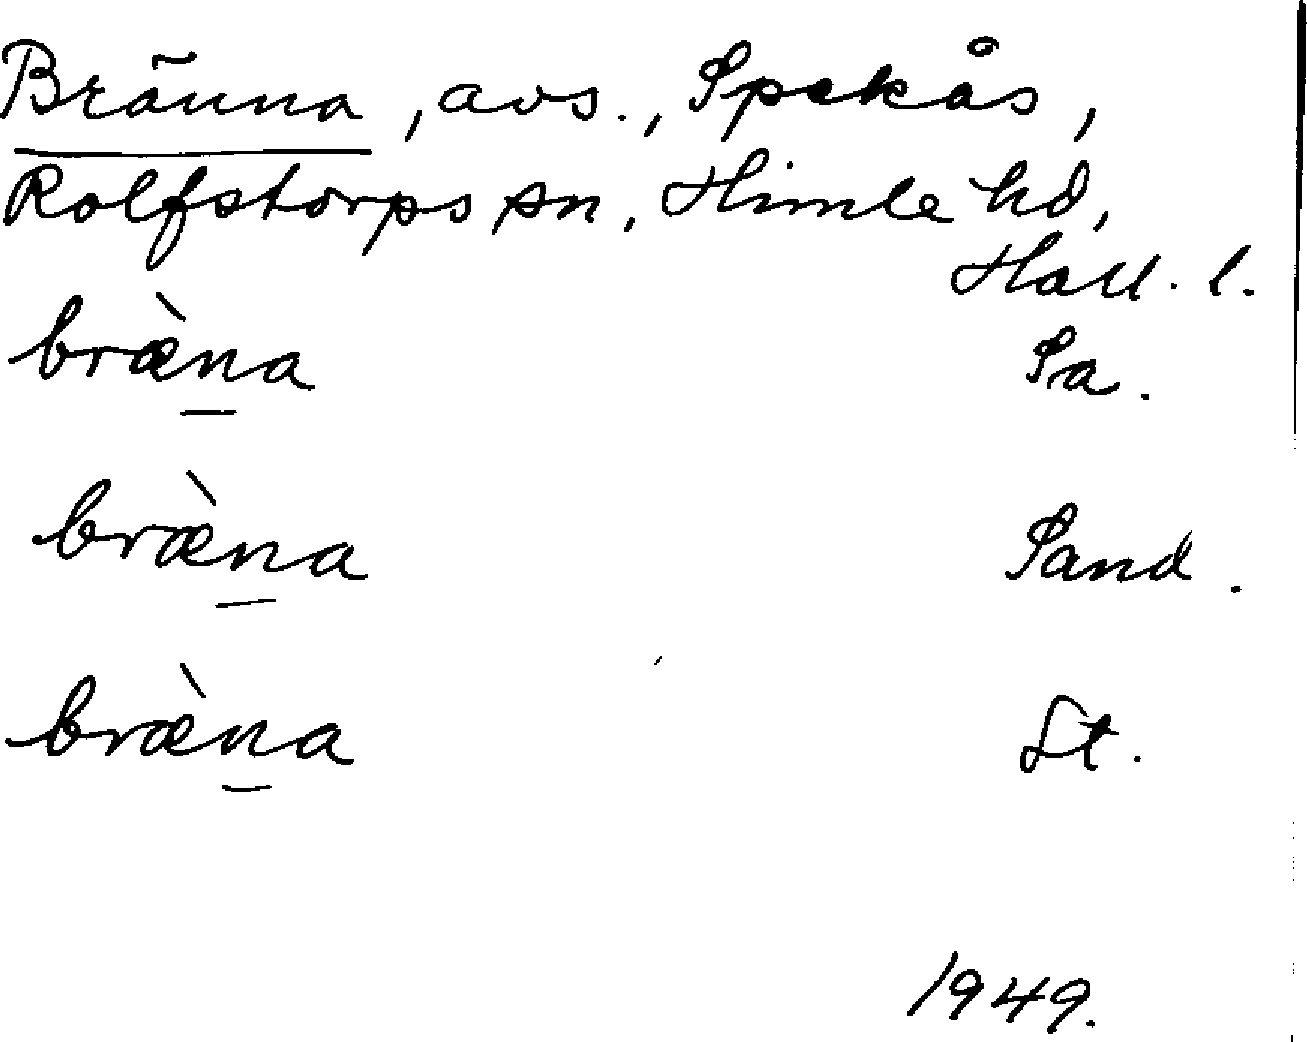 Bränna, avs., Spekås,
Rolfstorps sn, Himle hd,
Hall. l.
bræ̀na Sa.
bræ̀na Sand.
bræ̀na St.
1949.